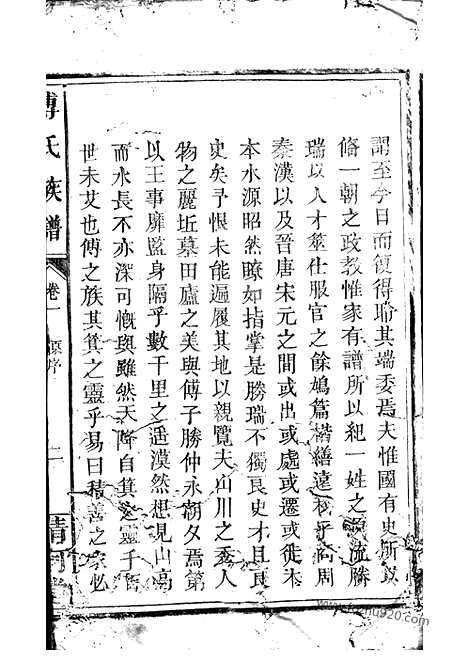 謂至今日而復得聆其端委焉夫惟國有史所以
脩一朝之政教惟家有譜所以紀一姓之源流勝
瑞以人才筮仕服官之餘鳩篇楷繕遠 乎商周
秦漢以及晉唐宋元之間或出或處或遷或徙木
本水源昭然瞭如指掌是勝瑞不獨良史才且良
史矣予恨未能遍履其地以親覽夫山川之秀人
物之麗坵墓田廬之美與傅子勝仲永朝夕焉第
以王事靡盬身隔乎數千里之遥漠然想見山高
而水長不亦深可慨與雖然天降自箕之靈千百
世未艾也傅之族其箕之靈乎易曰積善之家必
傅氏族譜
卷一
原序
二
清